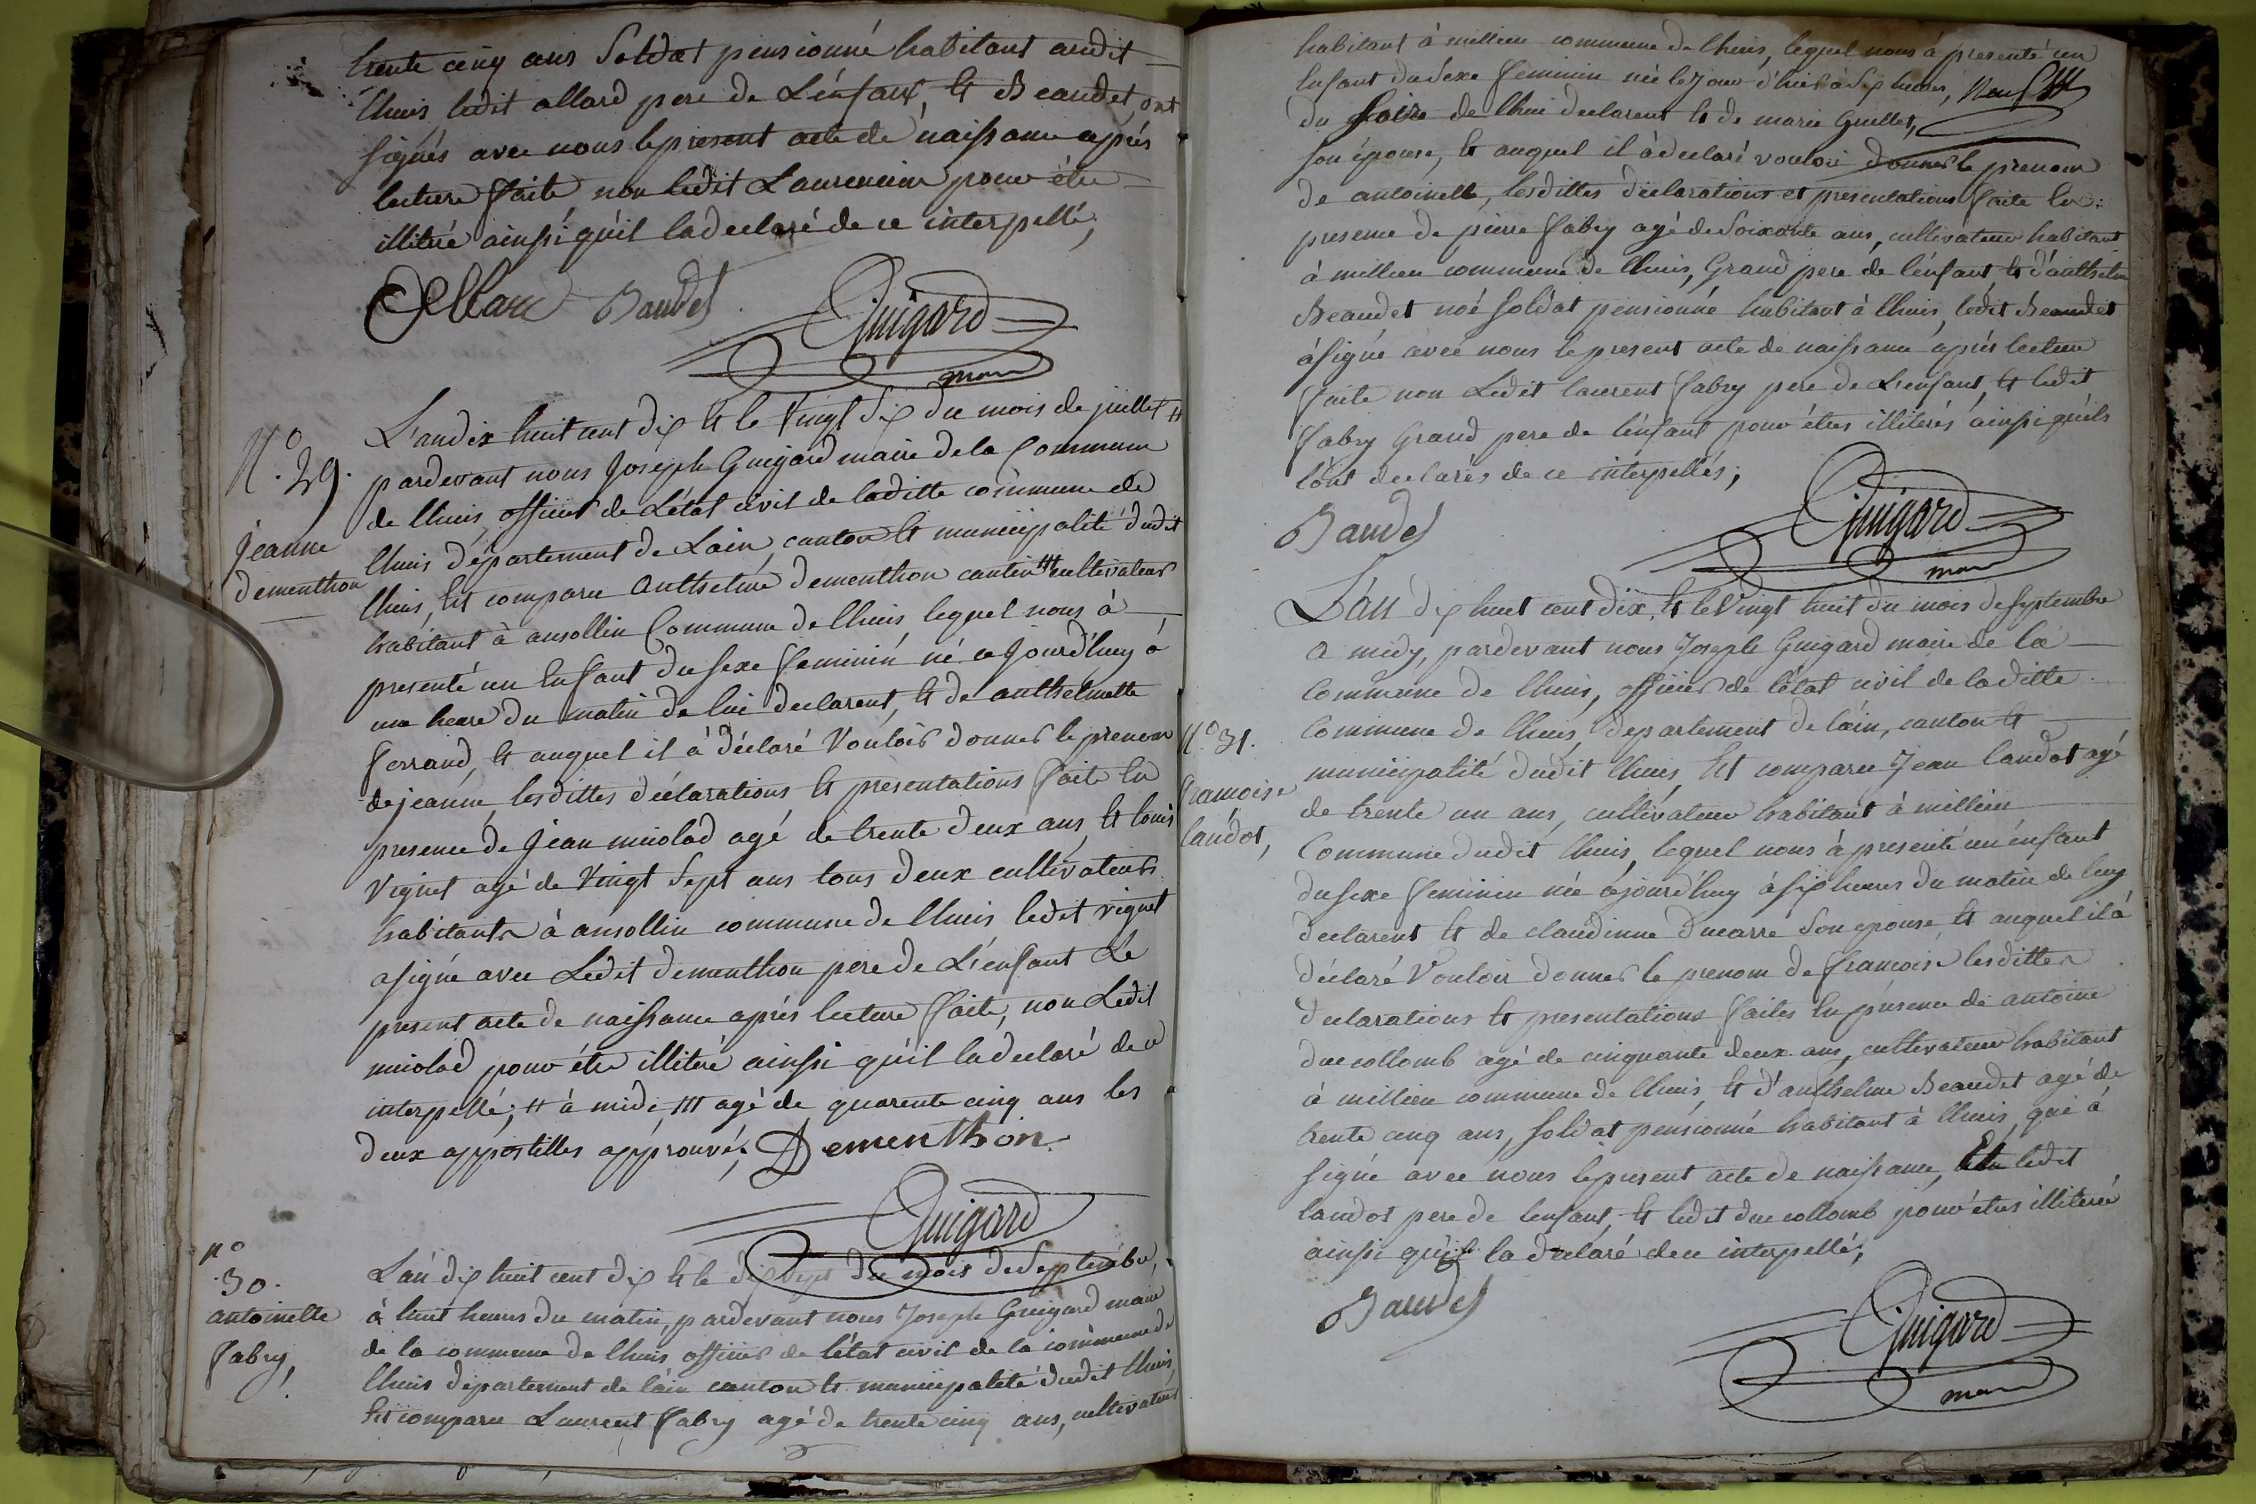 trente cinq ans Soldat pensionné habitant audit
lhuis ledit allard pere de L'énfant, et Beaudet, ont
signés avec nous le present acte de naissance aprés
lecture faite non ledit Laurencin pour étre
illitéré ainsi qu'il la declaré de ce interpellé,
Allard Baudet
Guigard
maire
N.º 29.
jeanne
dementhon
L'an dix huit cent dix et le vingt six du mois de juillet #
pardevant nous Joseph Guigard maire de la Commune
de lhuis officier de L'état civil de laditte commune de
lhuis département de Lain, canton et municipalité dudit
lhuis, Est comparu Anthelme dementhon cantin ### cultivateur
habitant à ansollin Commune de lhuis lequel nous à
presenté un Enfant du sexe feminin né ce jourd'huy à
une heure du matin de lui declarent, et de anthelmette
ferrand, et auquel il à déclaré Vouloir donner le prenom
de jeanne, lesdittes déclarations et présentations faite En
presence de jean miolad agé de trente deux ans, et louis
Viguet agé de Vingt Sept ans tous deux cultivateurs
habitants à ansollin commune de lhuis ledit viguet
a signé avec Ledit dementhon pere de L'énfant Le
present acte de naissance aprés lecture faite, non Ledit
miolad pour étre illitéré ainsi qu'il la declaré de ce
interpellé; # à midi, ### agé de quarente cinq ans les
deux appostilles approuvés, Dementhon
Guigard
nº
30.
antoinette
fabry,
L'an dix huit cent dix et le dix sept du mois de Septembre,
à huit heures du matin, pardevant nous Joseph Guigard maire
de la commune de lhuis officier de l'état civil de la commune de
lhuis département de láin canton et municipalité dudit lhuis,
Est comparu Laurent fabry agé de trente cinq ans, cultivateur
habitant à millieu commune de lhuis, lequel nous à presenté un
Enfant du Sexe feminin née le jour d'hier à six heures,
du Soire de lhui declarent et de marie Guillet,
son épouse, et auquel il à declaré vouloir donner le prenom
de antoinette, lesdittes déclarations et présentations faite En
presence de pierre fabry agé de Soixante ans, cultivateur habitant
à millieu commune de lhuis, Grand pere de l'énfant et d'anthelme
Beaudet soldat pensionné habitant à lhuis, ledit Beaudet
à signé avec nous le present acte de naissance aprés lecture
faite non Ledit laurent fabry pere de L'enfant, et ledit
fabry Grand pere de l'énfant pour étres illitérés ainsi qu'ils
l'ont declarés de ce intérpellés;
Baudet
Guigard
maire
Nº 31.
francoise
landot,
L'an dix huit cent dix, et le Vingt huit du mois de septembre
a midy, pardevant nous Joseph Guigard maire de la
Commune de lhuis, officier de l'état civil de laditte
Commune de lhuis département de láin, canton et
municipalité dudit lhuis, Est comparu Jean landot agé
de trente un ans, cultivateur habitant à millieu
Commune dudit lhuis, lequel nous à presenté un énfant
du sexe feminin née cejourd'huy à six heures du matin de luy
declarent et de claudinne ducarre son epouse, et auquel il à
déclaré Vouloir donner le prenom de francoise lesdittes
declarations et presentations faites En présence de antoine
ducollomb agé de cinquante deux ans, cultivateur habitant
à millieu commune de lhuis, et d'anthelme Beaudet agé de
trente cinq ans, soldat pensionné habitant à lhuis, qui à
signé avec nous le present acte de naissance, ledit
landot pere de lenfant, et ledit ducollomb pour étres illiteré
ainsi qu'il la declaré de ce interpellé;
Baudet
Guigard
maire